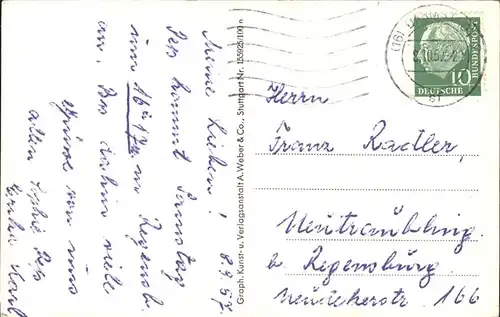 Meine Lieben! 8.9.57.
Sepp kommt Samstag
um 16 17 in Regensb.
an. Bis dahin viele
Grüße von uns
allen Sepp
Graph. Kunst- u. Verlagsanstalt A. Weber & Co., Stuttgart Nr. 155925/100 n
(16)
10
DEUTSCHE
BUNDESPOST
Herrn
Franz Radtler,
Neutraubling
b. Regensburg.
166